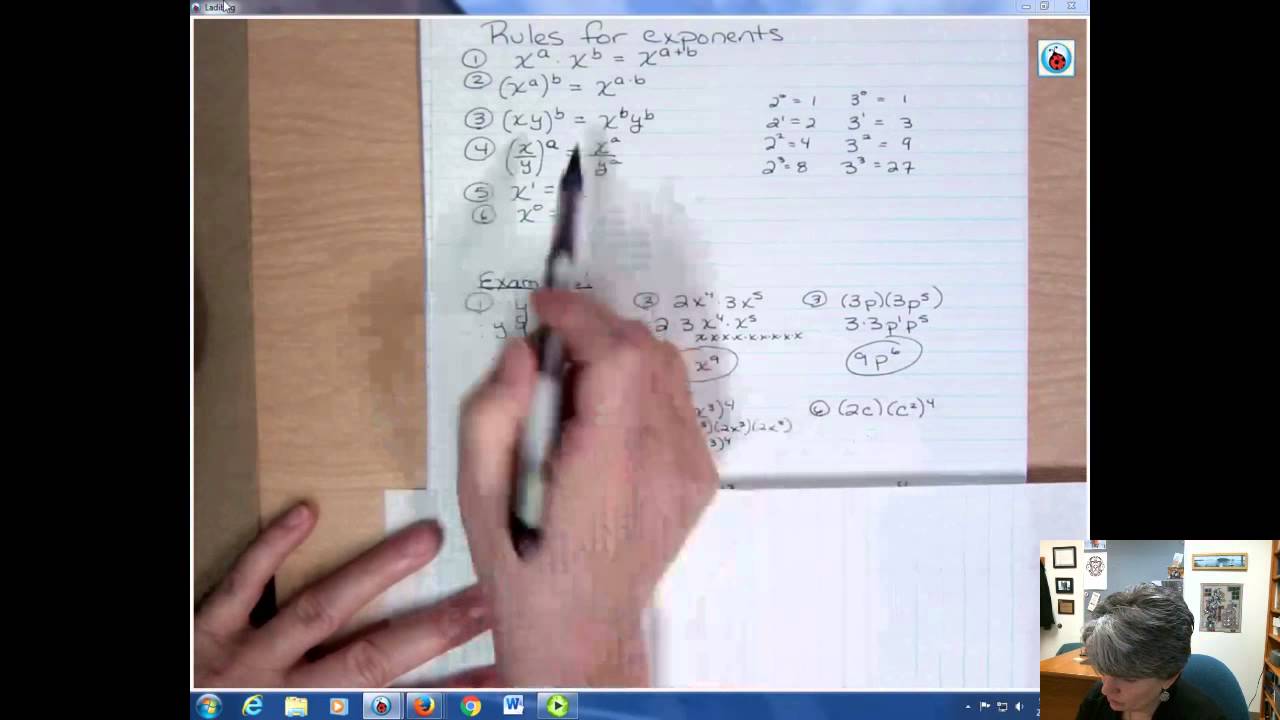 Rules for exponents
① xᵃ · xᵇ = xᵃ⁺ᵇ
② (xᵃ)ᵇ = xᵃ·ᵇ
③ (xy)ᵇ = xᵇyᵇ
④ (x/y)ᵃ = xᵃ/yᵃ
⑤ x¹ =
⑥ x⁰ =
2⁰ = 1 3⁰ = 1
2¹ = 2 3¹ = 3
2² = 4 3² = 9
2³ = 8 3³ = 27
① y
② 2x⁴ · 3x⁵
2 3 x⁴ · x⁵
x x x x · x x x x x
x⁹
③ (3p)(3p⁵)
3·3p¹p⁵
9p⁶
x³)⁴
)(2x³)(2x³)
³)⁴
⑥ (2c)(c²)⁴